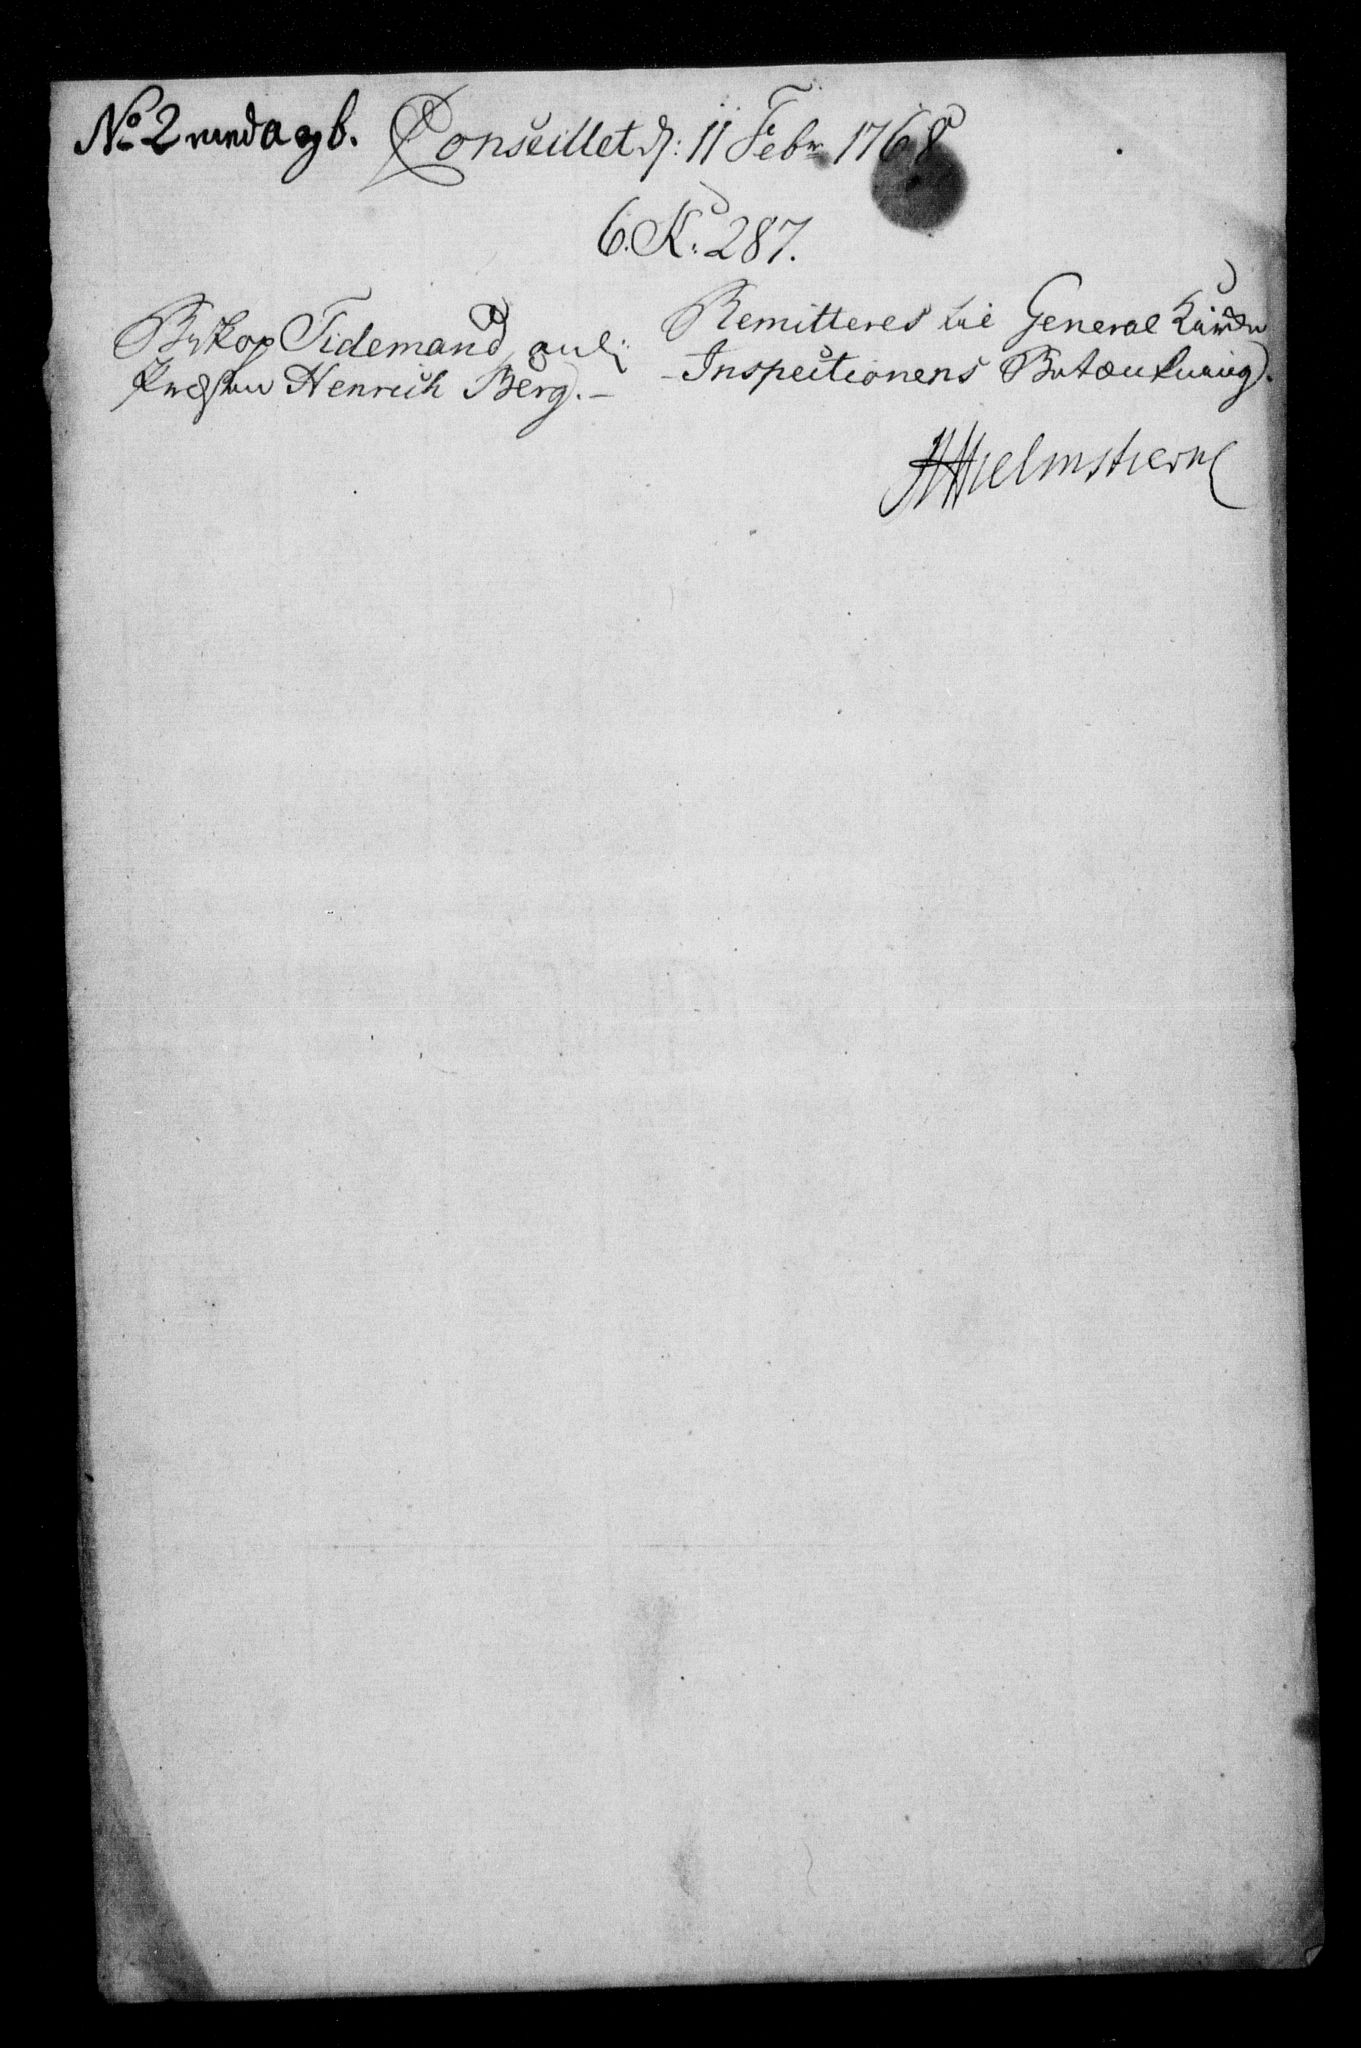 No 2 med a og b. Conseillet d: 11 Febr 1768
6. K: 287.
Biskop Tidemand, anl:
Præsten Henrich Berg. -
Remitteres til General Kirke
- Inspectionens Betænkning.
HHielmstierne